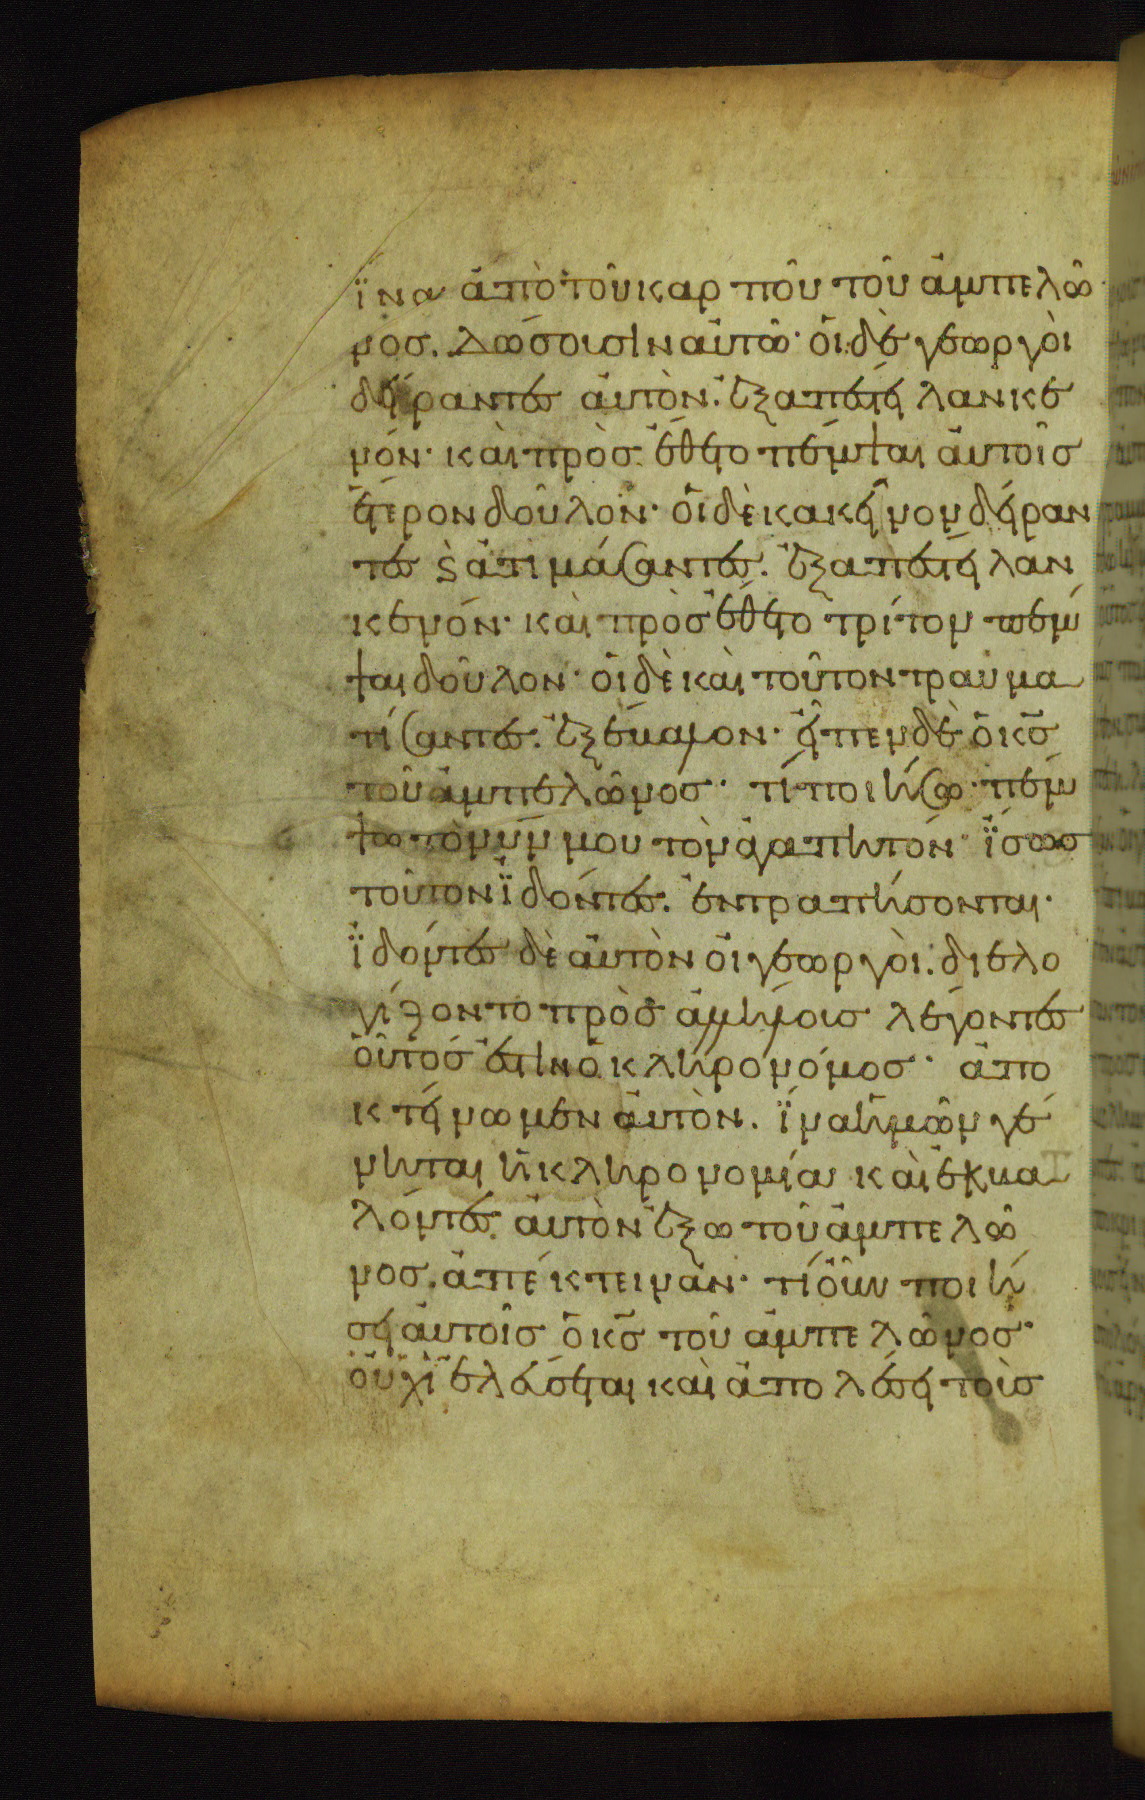 ἵνα ἀπὸ τοῦ καρποῦ τοῦ ἀμπελῶ
νοσ. δώσουσιν αὐτῶ· οἱ δὲ γεωργοὶ
δείραντεσ αὐτὸν. ἐξαπέστειλαν κε
νόν· καὶ προσέθετο πέμψαι αὐτοῖσ
ἕτερον δοῦλον· οἱ δὲ κακεῖνον δείραν
τεσ ϗ ἀτιμάσαντεσ. ἐξαπέστειλαν
κενόν· καὶ προσέθετο τρίτον πέμ
ψαι δοῦλον· οἱ δὲ καὶ τοῦτον τραυμα
τίσαντεσ. ἐξέβαλον· εἶπεν δὲ ὁ κσ
τοῦ ἀμπελῶνοσ· τί ποιήσω· πέμ
ψω τὸν υἱν μου τὸν ἀγαπητόν· ἴσωσ
τοῦτον ἰδόντεσ. ἐντραπήσονται·
ἰδόντεσ δὲ αὐτὸν οἱ γεωργοὶ. διελο
γίζοντο πρὸσ ἀλλήλουσ λέγοντεσ
οὗτόσ ἐστιν ὁ κληρονόμοσ· ἀπο
κτείνωμεν αὐτὸν. ἵνα ἡμῶν γέ
νηται ἡ κληρονομία καὶ ἐκβα
λόντεσ αὐτὸν ἔξω τοῦ ἀμπελῶ
νοσ. ἀπέκτειναν· τί οὖν ποιή
σει αὐτοῖσ ὁ κσ τοῦ ἀμπελῶνοσ·
οὐχὶ ἐλεύσεται καὶ ἀπολέσει τοὺσ